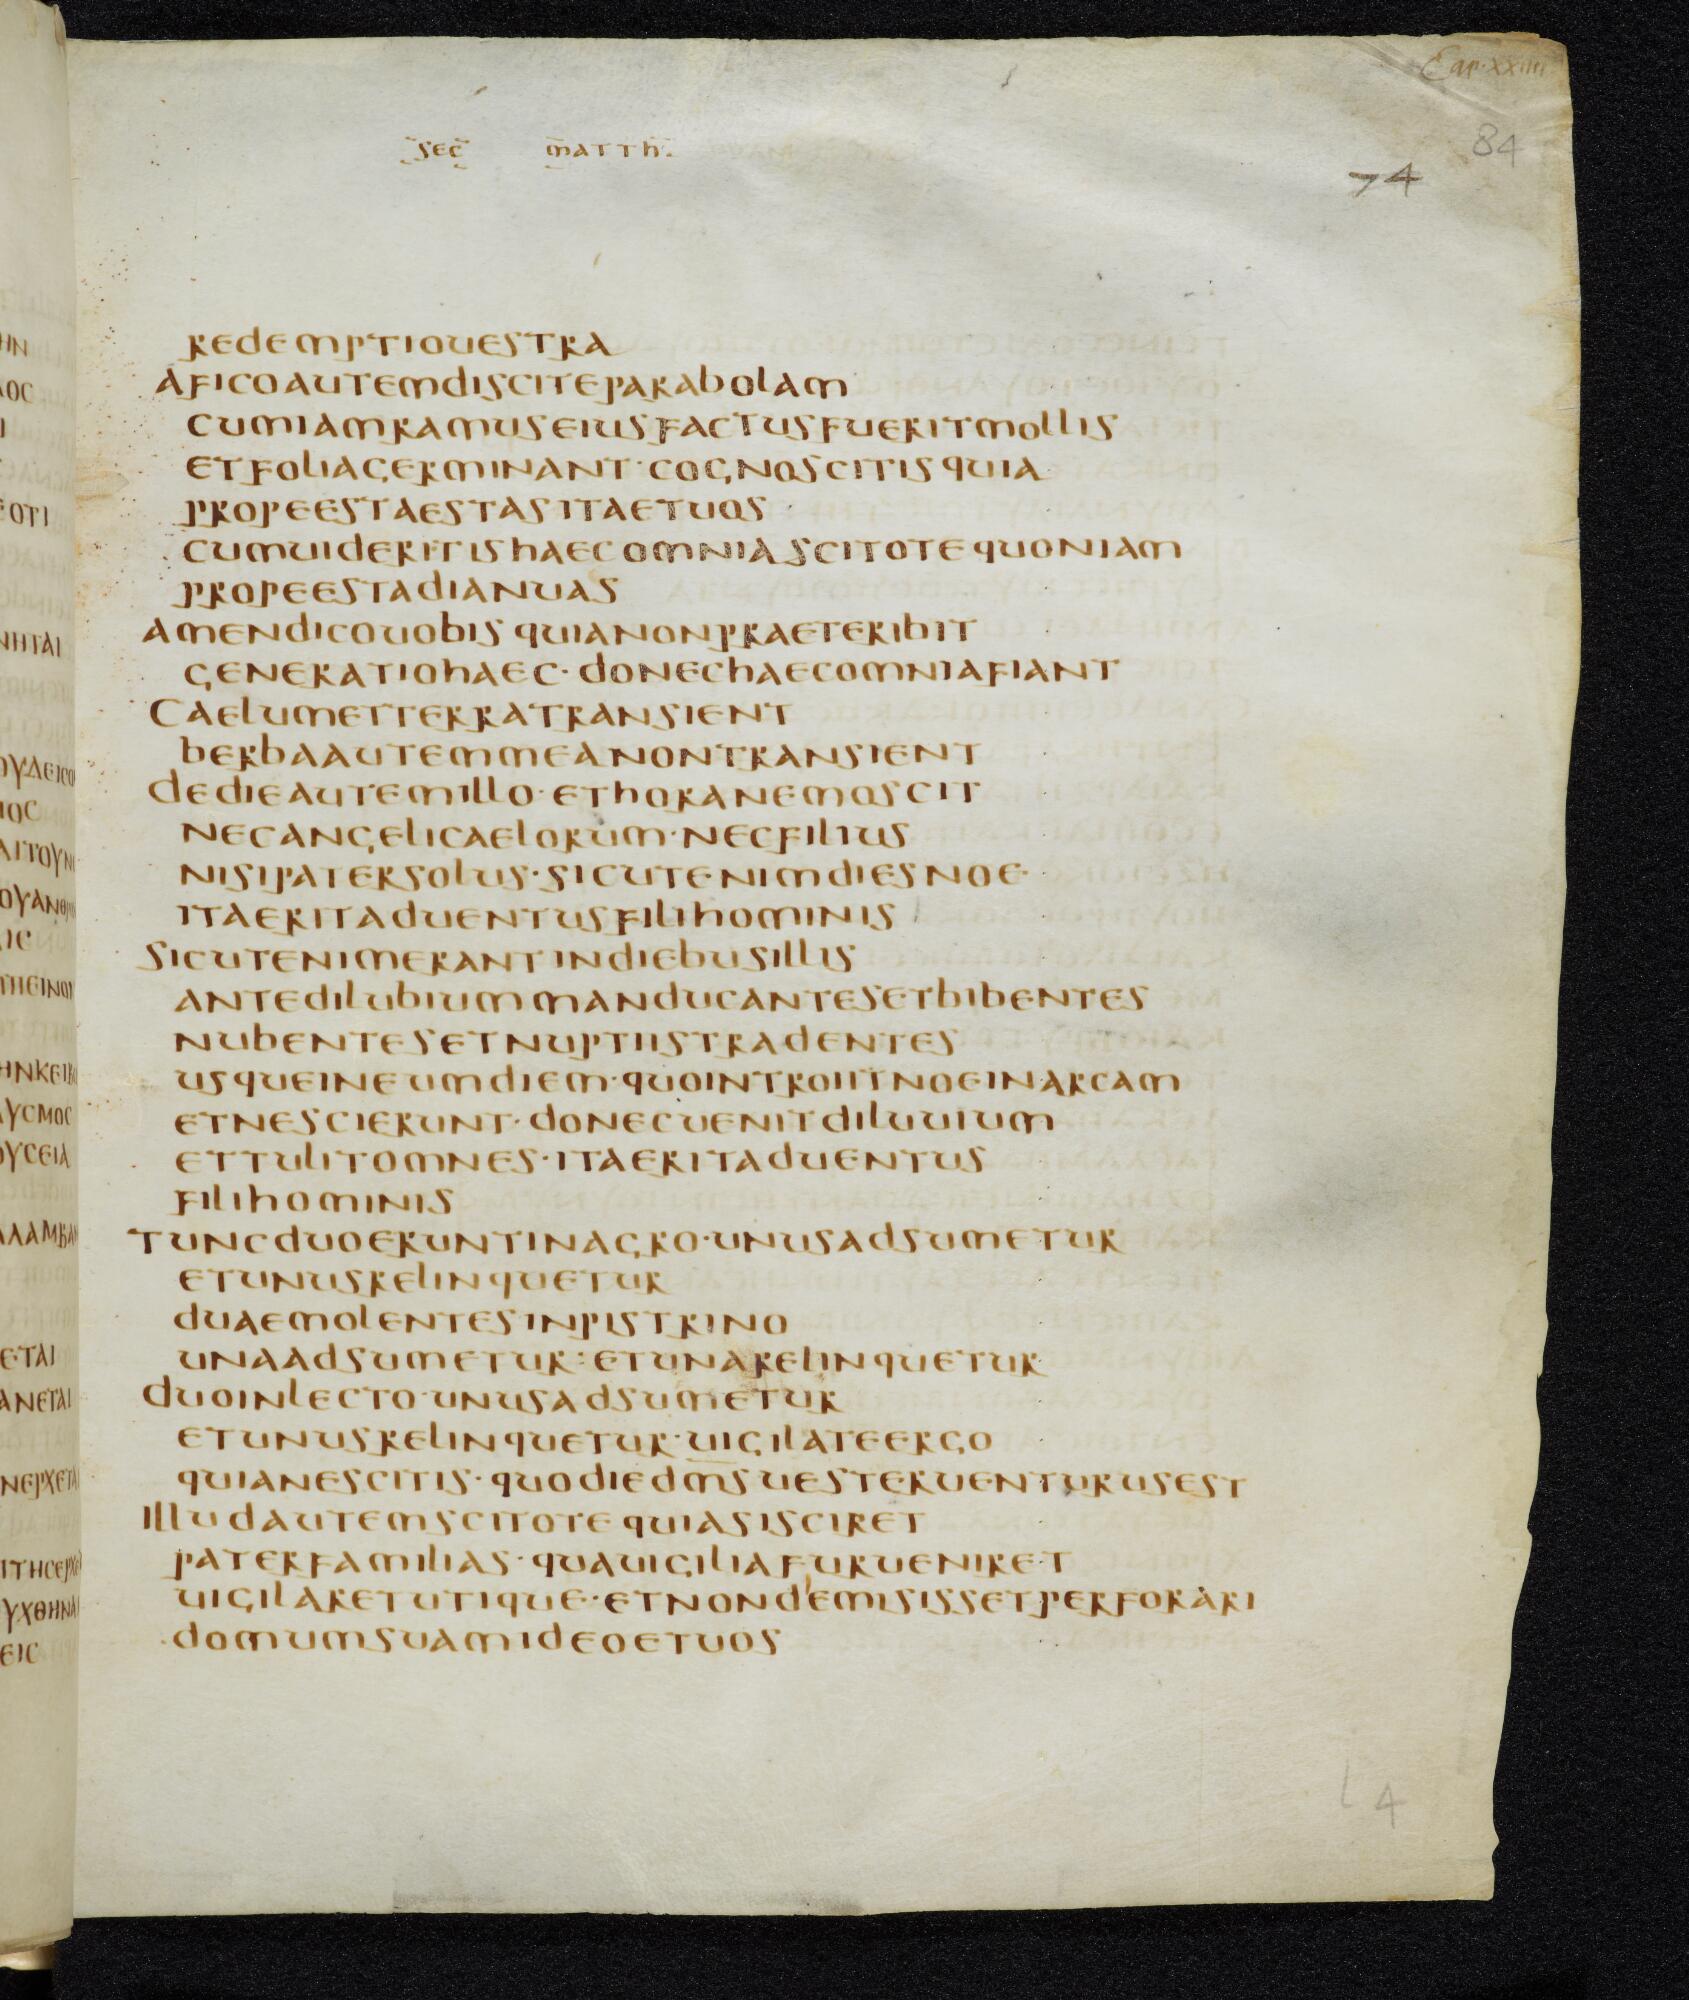 Cap. xxiiii
84
74
sec matth.
redemptiouestra
aficoautemdisciteparabolam
cumiamramuseiusfactusfueritmollis
etfoliagerminant·cognoscitisquia
propeestaestasitaetuos
cumuideritishaecomniascitotequoniam
propeestadianuas
amendicouobisquianonpraeteribit
generatiohaec·donechaecomniafiant
Caelumetterratransient
berbaautemmeanontransient
dedieautemillo·ethoranemoscit
necangelicaelorum·necfilius
nisipatersolus·sicutenimdiesnoe·
itaeritaduentusfilihominis
Sicutenimerantindiebusillis
antedilubiummanducantesetbibentes
nubentesetnuptiistradentes
usqueineumdiem·quointroiitnoeinarcam
etnescierunt·donecuenitdiluuium
ettulitomnes·itaeritaduentus
filihominis
tuncduoeruntinagro·unusadsumetur
etunusrelinquetur
duaemolentesinpistrino
unaadsumetur:etunarelinquetur
duoinlecto·unusadsumetur
etunusrelinquetur·uigilateergo
quianescitis·quodiedmsuesteruenturusest
illudautemscitotequiasisciret
paterfamilias·quauigiliafurueniret
uigilaretutique·etnondemisissetperforari
domumsuamideoetuos
L4